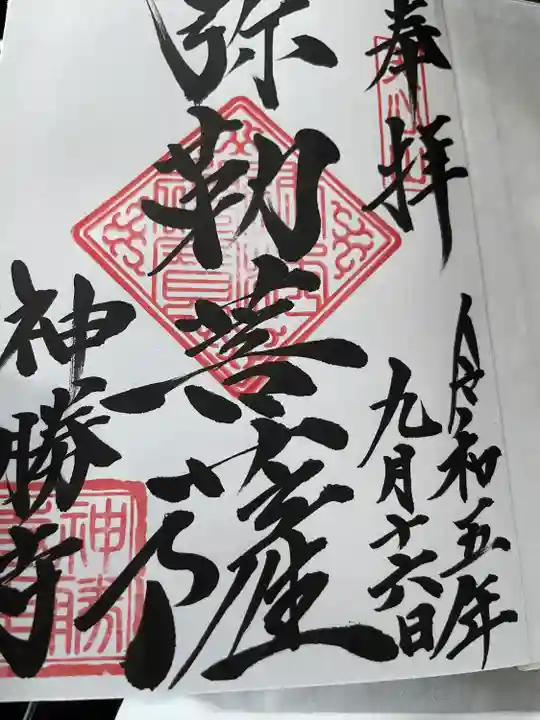 奉拝
令和五年
九月十六日
弥勒菩薩
神勝寺